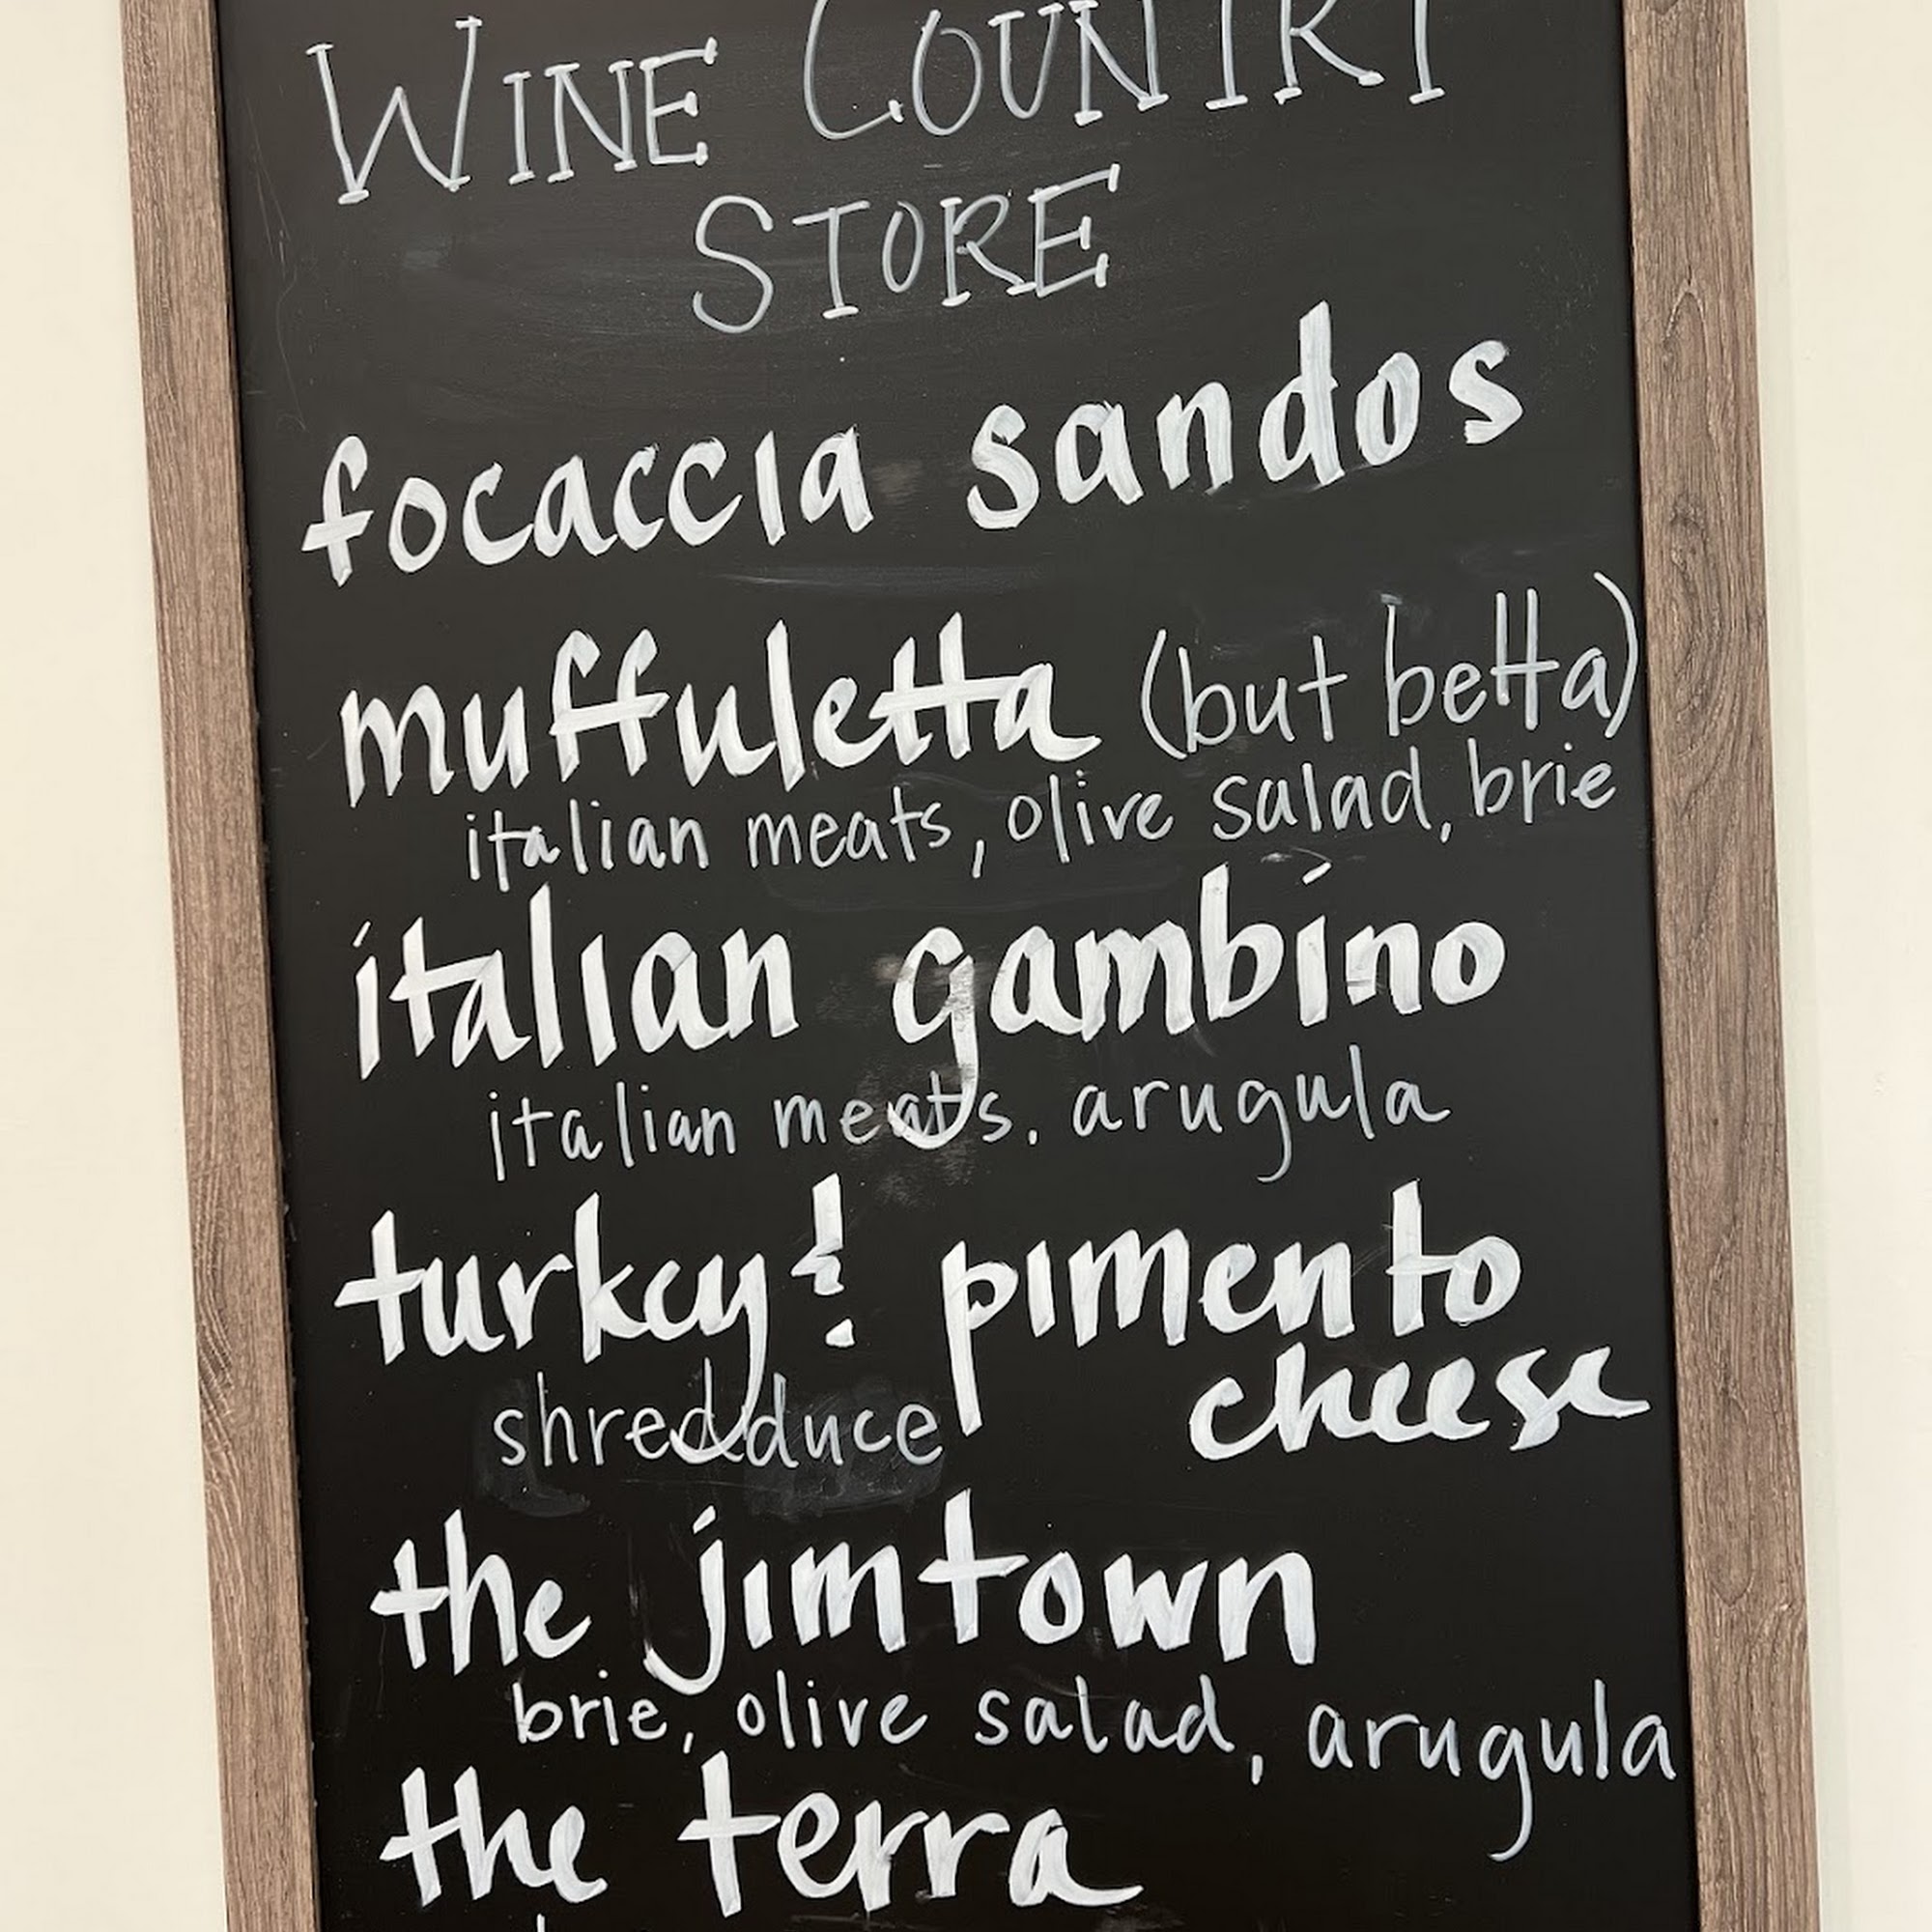 WINE COUNTRY
STORE
focaccia sandos
muffuletta (but betta)
italian meats, olive salad, brie
italian gambino
italian meats, arugula
turkey & pimento
cheese
shredduce
the jimtown
brie, olive salad, arugula
the terra